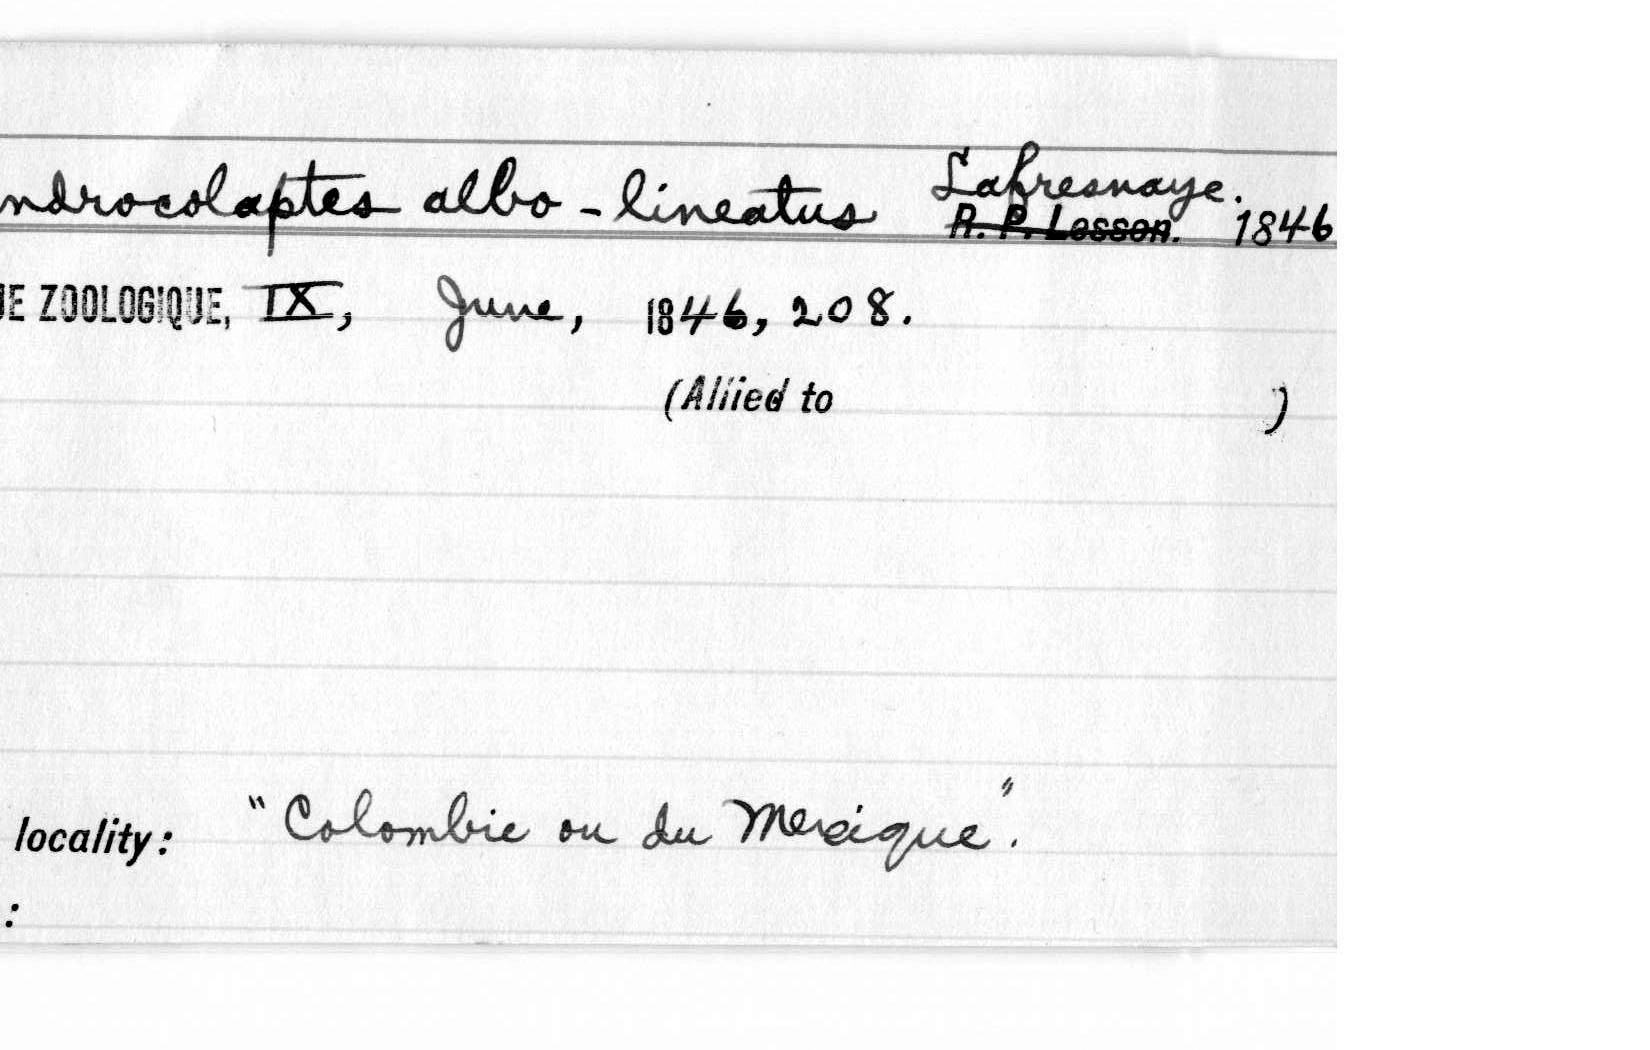 Lafresnaye.
ndrocolaptes albo-lineatus R. P. Lesson. 1846
UE ZOOLOGIQUE, IX, June, 1846, 208.
(Allied to )
locality: "Colombie ou du Mexique".
: